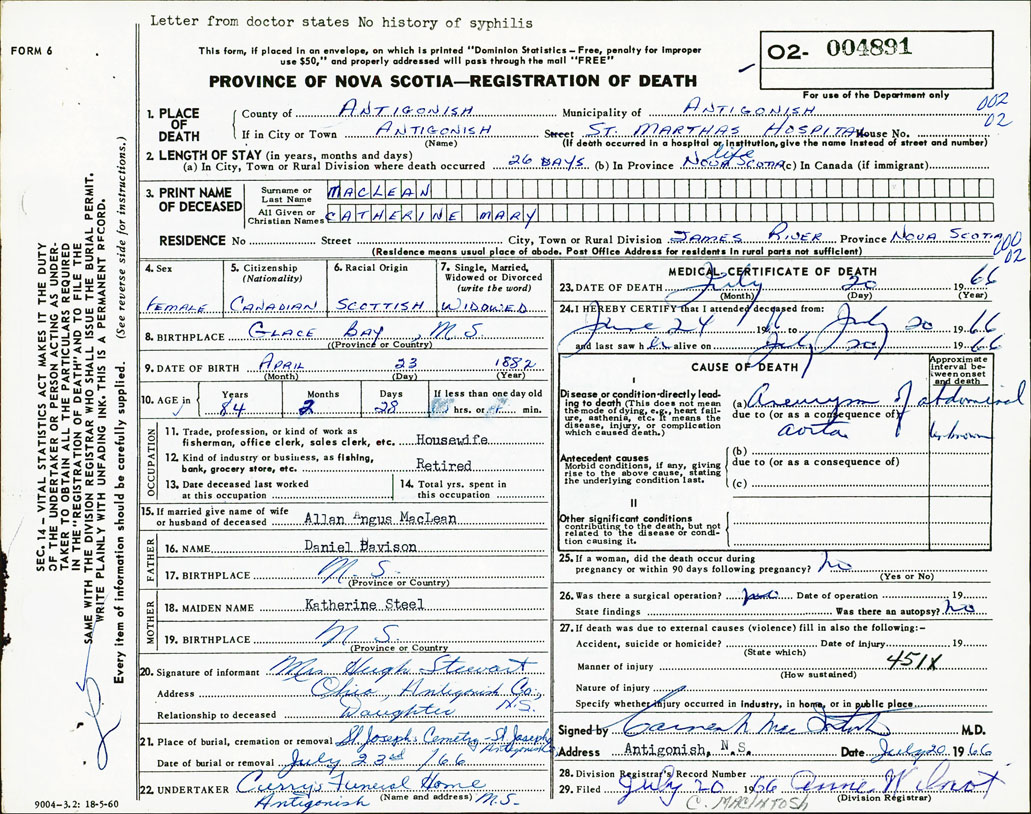 Letter from doctor states No history of syphilis
FORM 6
This form, if placed in an envelope, on which is printed "Dominion Statistics—Free, penalty for improper
use $50," and properly addressed will pass through the mail "FREE"
O2- 004891
For use of the Department only
PROVINCE OF NOVA SCOTIA—REGISTRATION OF DEATH
002
02
1. PLACE OF DEATH
County of ANTIGONISH Municipality of ANTIGONISH
If in City or Town ANTIGONISH Street ST. MARTHAS HOSPITAL House No.
(Name) (If death occurred in a hospital or institution, give the name instead of street and number)
2. LENGTH OF STAY (in years, months and days)
(a) In City, Town or Rural Division where death occurred 26 DAYS (b) In Province life NOVA SCOTIA (c) In Canada (if immigrant)
3. PRINT NAME OF DECEASED
Surname or Last Name MACLEAN
All Given or Christian Names CATHERINE MARY
RESIDENCE No Street City, Town or Rural Division JAMES RIVER Province NOVA SCOTIA
(Residence means usual place of abode. Post Office Address for residents in rural parts not sufficient)
000
02
4. Sex FEMALE
5. Citizenship (Nationality) CANADIAN
6. Racial Origin SCOTTISH
7. Single, Married, Widowed or Divorced (write the word) WIDOWED
8. BIRTHPLACE GLACE BAY, N.S.
(Province or Country)
9. DATE OF BIRTH APRIL 23 1882
(Month) (Day) (Year)
10. AGE in Years 84 Months 2 Days 28 If less than one day old hrs. or min.
OCCUPATION
11. Trade, profession, or kind of work as
fisherman, office clerk, sales clerk, etc. Housewife
12. Kind of industry or business, as fishing,
bank, grocery store, etc. Retired
13. Date deceased last worked
at this occupation
14. Total yrs. spent in
this occupation
15. If married give name of wife
or husband of deceased Allan Angus MacLean
FATHER
16. NAME Daniel Davison
17. BIRTHPLACE N.S.
(Province or Country)
MOTHER
18. MAIDEN NAME Katherine Steel
19. BIRTHPLACE N.S.
(Province or Country)
20. Signature of informant Mrs Hugh Stewart
Address Ohio, Antigonish Co., N.S.
Relationship to deceased Daughter
21. Place of burial, cremation or removal St Joseph's Cemetry - St Joseph's Antigonish
Date of burial or removal July 23rd /66
22. UNDERTAKER Curry's Funeral Home
(Name and address) Antigonish N.S.
9004-3.2: 18-5-60
MEDICAL CERTIFICATE OF DEATH
23. DATE OF DEATH July 20 1966
(Month) (Day) (Year)
24. I HEREBY CERTIFY that I attended deceased from:
June 24 1966 to July 20 1966
and last saw her alive on July 20 1966
CAUSE OF DEATH
Approximate interval between onset and death
I
Disease or condition directly leading to death (This does not mean the mode of dying, e.g., heart failure, asthenia, etc. It means the disease, injury, or complication which caused death.)
(a) Aneurysm of abdominal
due to (or as a consequence of)
aorta
Antecedent causes
Morbid conditions, if any, giving rise to the above cause, stating the underlying condition last.
(b)
due to (or as a consequence of)
(c)
II
Other significant conditions
contributing to the death, but not related to the disease or condition causing it.
25. If a woman, did the death occur during
pregnancy or within 90 days following pregnancy? no
(Yes or No)
26. Was there a surgical operation? no Date of operation 19
State findings Was there an autopsy? no
27. If death was due to external causes (violence) fill in also the following:—
Accident, suicide or homicide? Date of injury 19
(State which)
Manner of injury 451X
(How sustained)
Nature of injury
Specify whether injury occurred in industry, in home, or in public place
Signed by M.D.
Address Antigonish, N.S. Date July 20 1966
28. Division Registrar's Record Number
29. Filed July 20 1966 Anne
(Division Registrar)
C. MACINTOSH
SEC. 14 – VITAL STATISTICS ACT MAKES IT THE DUTY
OF THE UNDERTAKER OR PERSON ACTING AS UNDER-
TAKER TO OBTAIN ALL THE PARTICULARS REQUIRED
IN THE "REGISTRATION OF DEATH" AND TO FILE THE
SAME WITH THE DIVISION REGISTRAR WHO SHALL ISSUE THE BURIAL PERMIT.
WRITE PLAINLY WITH UNFADING INK. THIS IS A PERMANENT RECORD.
Every item of information should be carefully supplied. (See reverse side for instructions.)